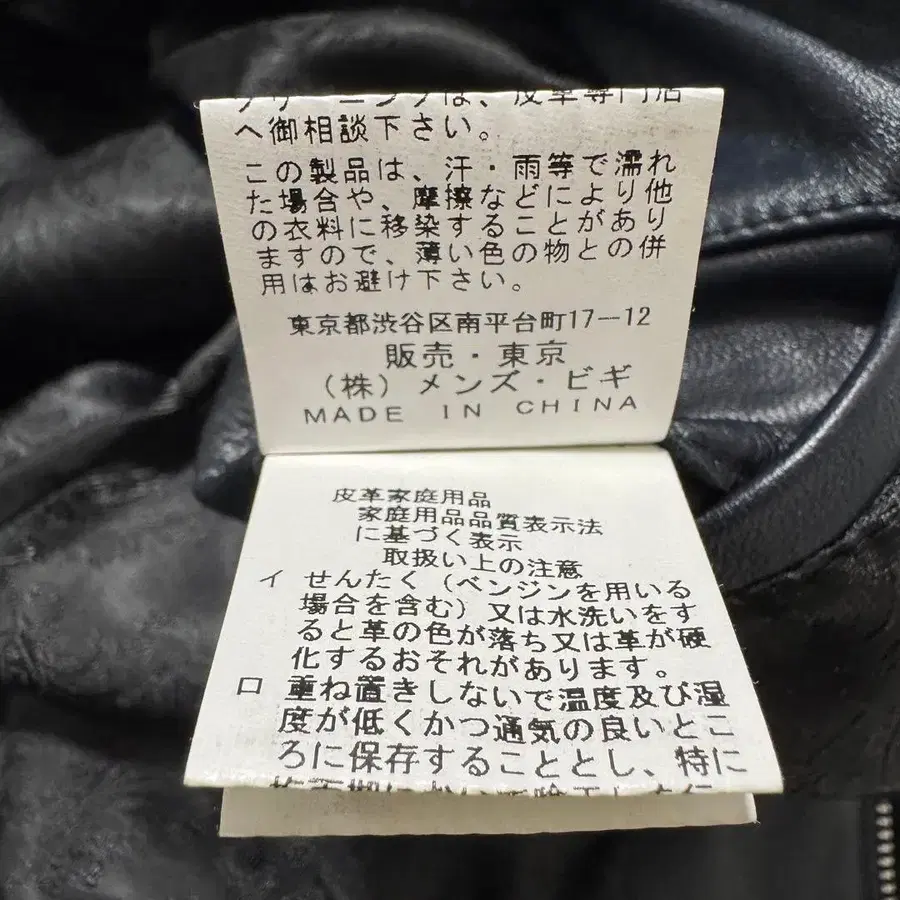 クリーニングは、皮革専門店
へ御相談下さい。
この製品は、汗・雨等で濡れ
た場合や、摩擦などにより他
の衣料に移染することがあり
ますので、薄い色の物との併
用はお避け下さい。
東京都渋谷区南平台町17-12
販売・東京
(株)メンズ・ビギ
MADE IN CHINA
皮革家庭用品
家庭用品品質表示法
に基づく表示
取扱い上の注意
イ せんたく(ベンジンを用いる
場合を含む)又は水洗いをす
ると革の色が落ち又は革が硬
化するおそれがあります。
ロ 重ね置きしないで温度及び湿
度が低くかつ通気の良いとこ
ろに保存することとし、特に